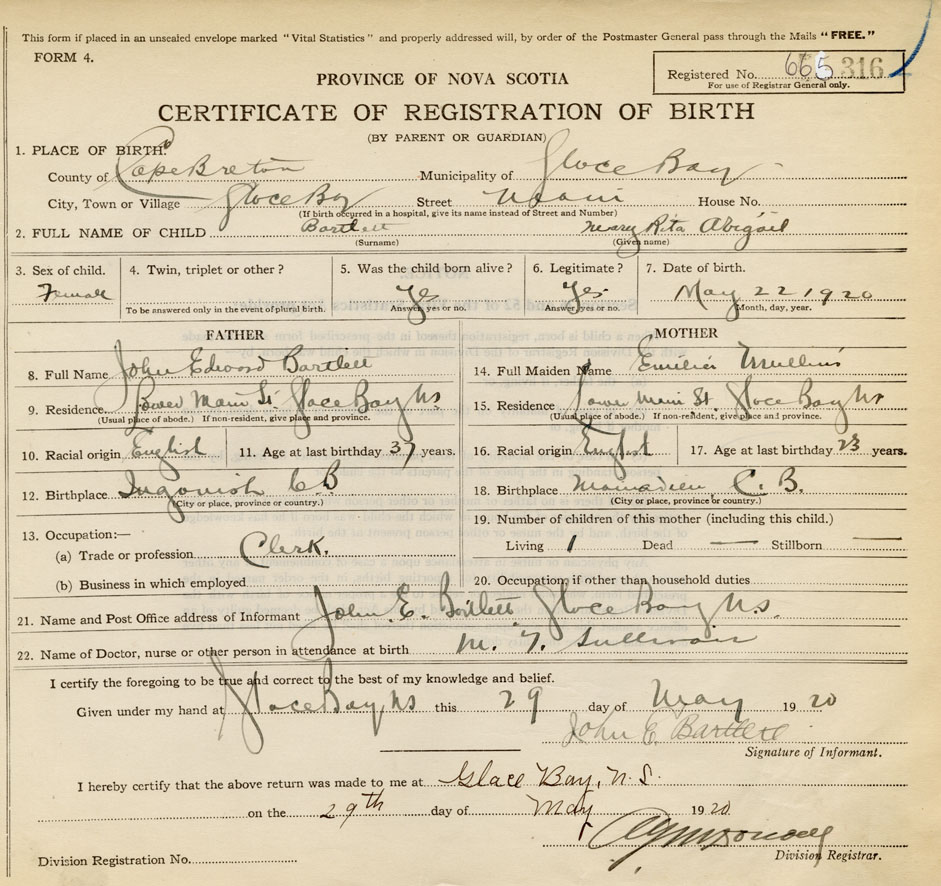 This form if placed in an unsealed envelope marked "Vital Statistics" and properly addressed will, by order of the Postmaster General pass through the Mails "FREE."
FORM 4.
Registered No. 665 316
For use of Registrar General only.
PROVINCE OF NOVA SCOTIA
CERTIFICATE OF REGISTRATION OF BIRTH
(BY PARENT OR GUARDIAN)
1. PLACE OF BIRTH:
County of Cape Breton Municipality of Glace Bay
City, Town or Village Glace Bay Street Main House No.
(If birth occurred in a hospital, give its name instead of Street and Number)
2. FULL NAME OF CHILD Bartlett Mary Rita Abigail
(Surname) (Given name)
3. Sex of child. 4. Twin, triplet or other? 5. Was the child born alive? 6. Legitimate? 7. Date of birth.
Female Yes Yes May 22 1920
To be answered only in the event of plural birth. Answer yes or no. Answer yes or no. Month, day, year.
FATHER MOTHER
8. Full Name John Edward Bartlett 14. Full Maiden Name Emilie Mullins
9. Residence Lower Main St. Glace Bay NS 15. Residence Lower Main St. Glace Bay NS
(Usual place of abode.) If non-resident, give place and province. (Usual place of abode.) If non-resident, give place and province.
10. Racial origin English 11. Age at last birthday 37 years. 16. Racial origin English 17. Age at last birthday 23 years.
12. Birthplace Ingonish CB 18. Birthplace C. B.
(City or place, province or country.) (City or place, province or country.)
13. Occupation:— 19. Number of children of this mother (including this child.)
(a) Trade or profession Clerk. Living 1 Dead — Stillborn —
(b) Business in which employed 20. Occupation, if other than household duties
21. Name and Post Office address of Informant John E. Bartlett Glace Bay N.S.
22. Name of Doctor, nurse or other person in attendance at birth M. T. Sullivan
I certify the foregoing to be true and correct to the best of my knowledge and belief.
Given under my hand at Glace Bay NS this 29 day of May 1920
John E Bartlett
Signature of Informant.
I hereby certify that the above return was made to me at Glace Bay, N.S.
on the 29th day of May 1920
Division Registration No. Division Registrar.